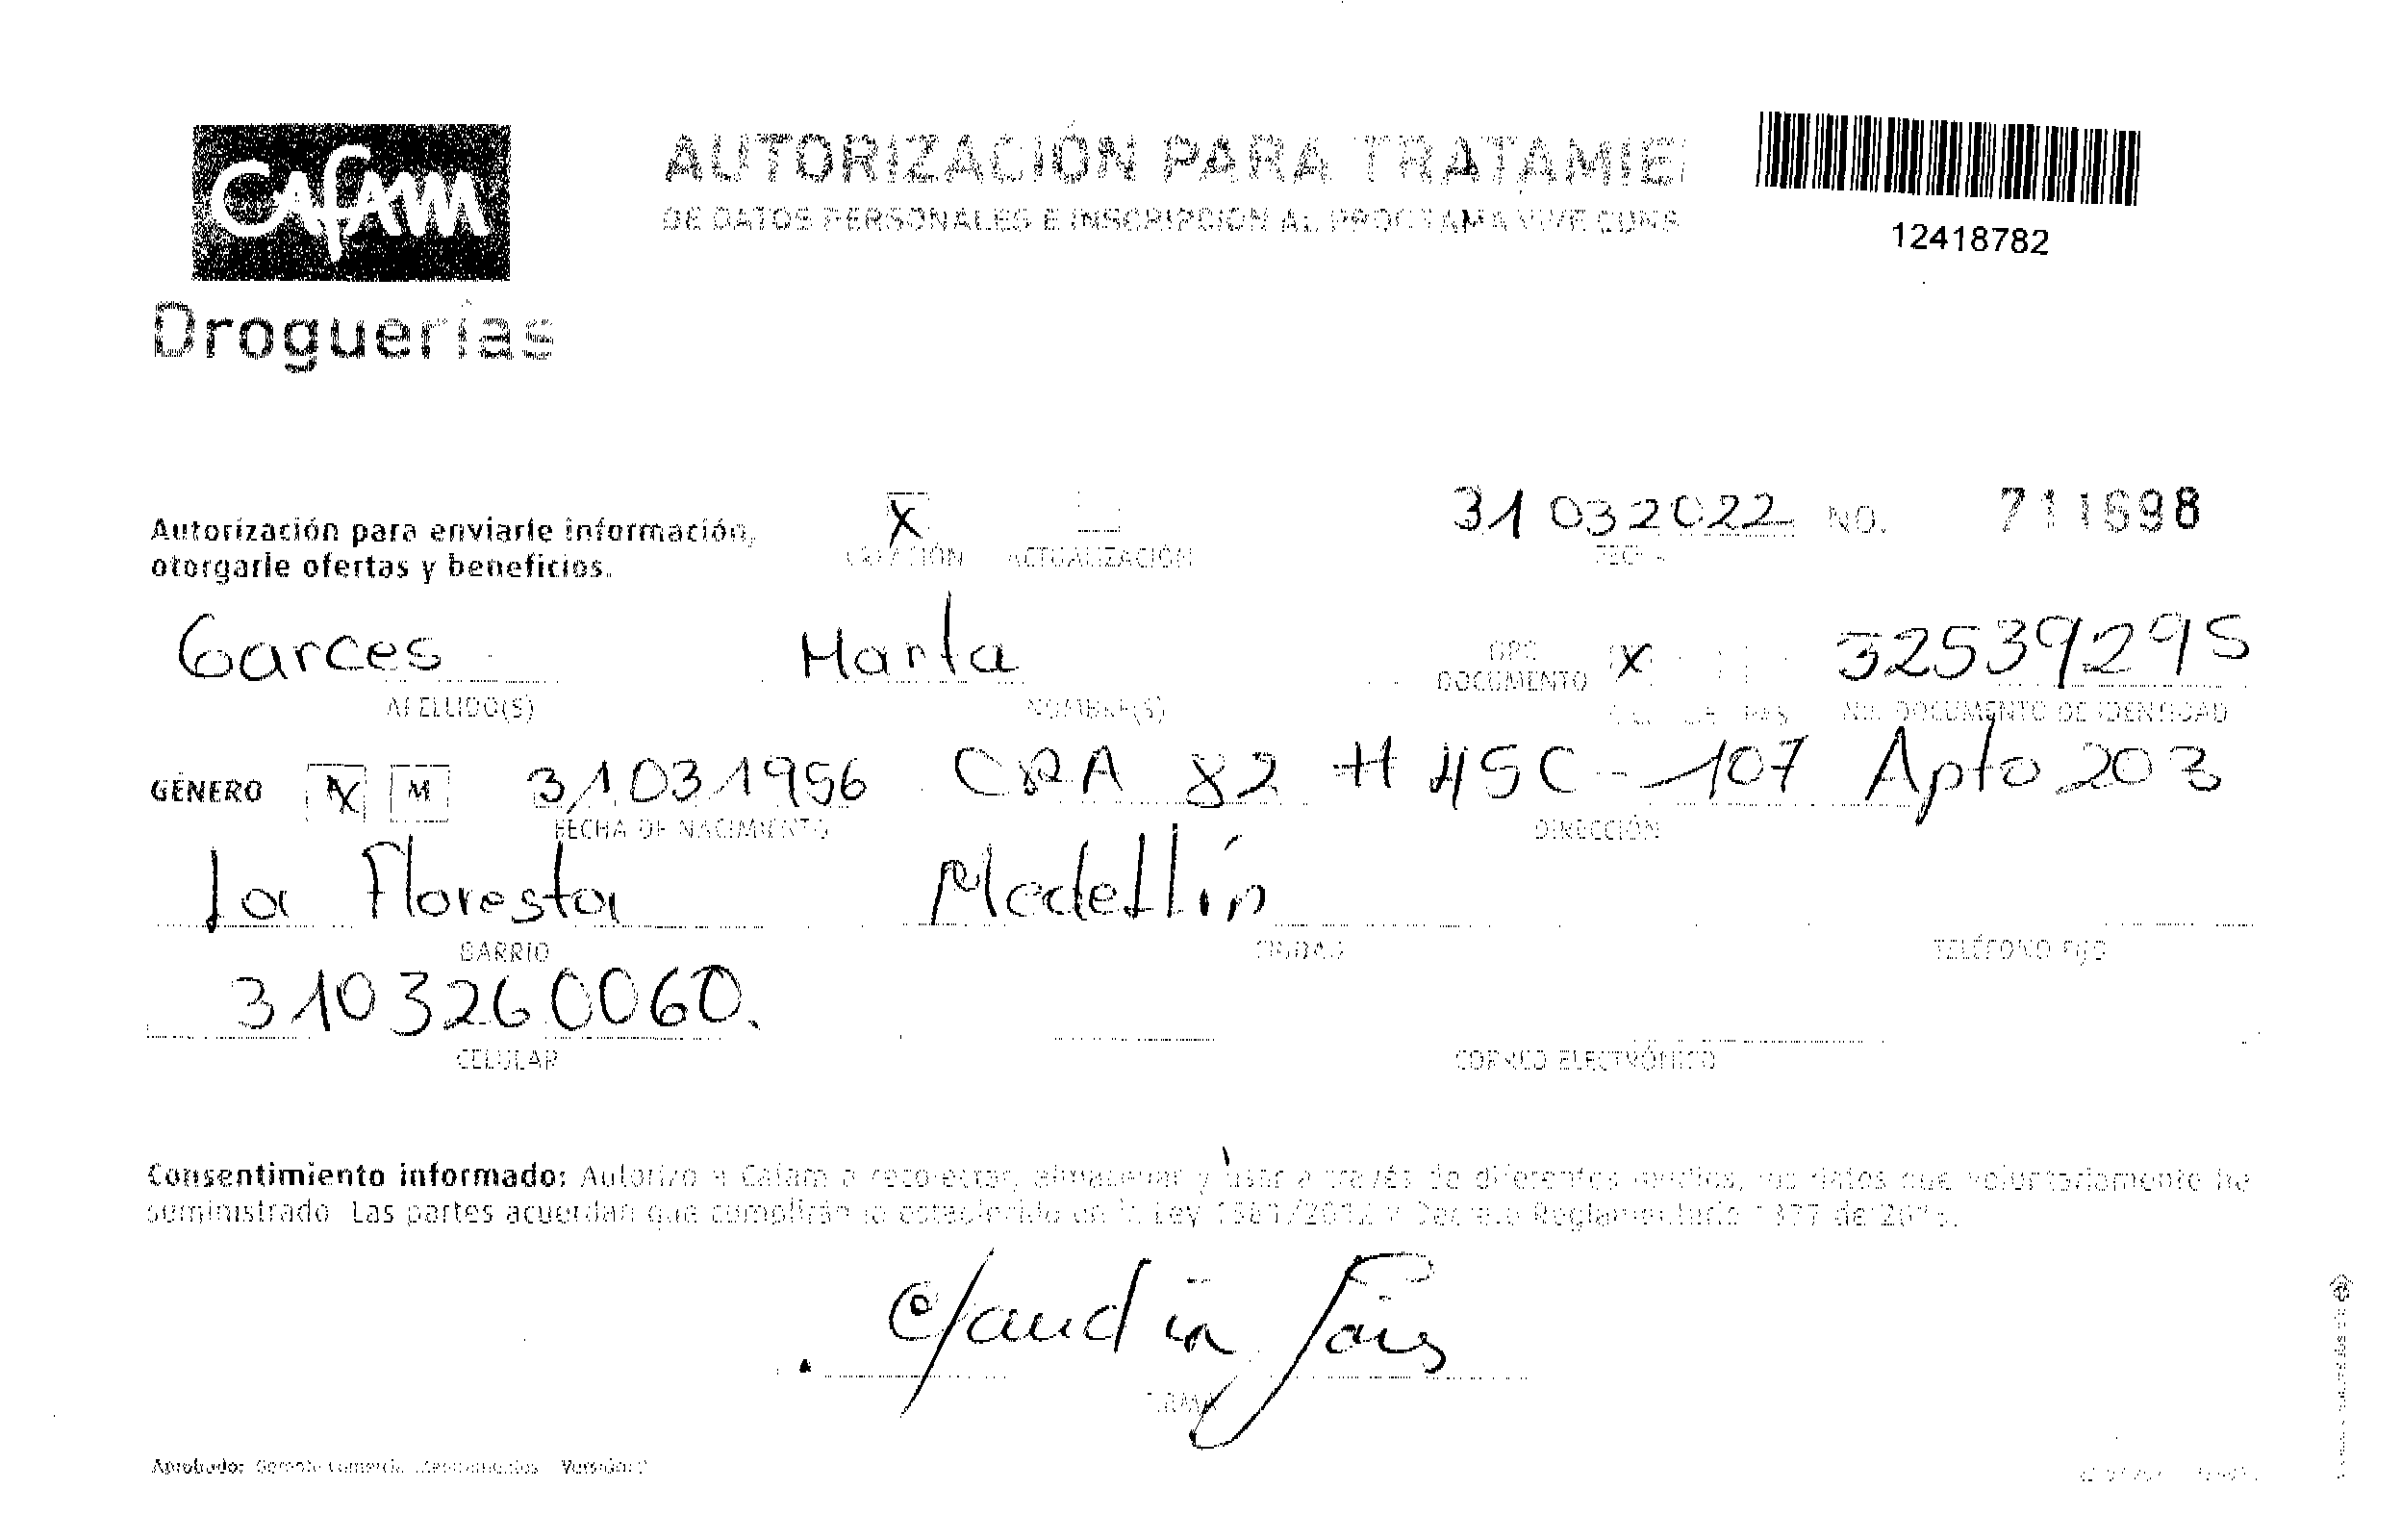 Cafam
Droguerías
AUTORIZACIÓN PARA TRATAMIE
DE DATOS PERSONALES E INSCRIPCION AL PROGRAMA VIVE CONS
12418782
Autorización para enviarle información,
otorgarle ofertas y beneficios.
X
CREACIÓN ACTUALIZACIÓN
31 03 2022 NO. 711698
FECHA
Garces Marta DOCUMENTO X 32539295
APELLIDO(S) NOMBRE(S) C.C. C.E. PAS No. DOCUMENTO DE IDENTIDAD
GÉNERO X M 31031956 CRA 82 # 45C - 107 Apto 203
FECHA DE NACIMIENTO DIRECCIÓN
La Floresta Medellín
BARRIO CIUDAD TELÉFONO FIJO
3103260060.
CELULAR CORREO ELECTRÓNICO
Consentimiento informado: Autorizo a Cafam a recolectar, almacenar y usar a través de diferentes medios, los datos que voluntariamente he
suministrado. Las partes acuerdan que cumplirán lo establecido en la Ley 1581/2012 y Decreto Reglamentario 1377 de
Claudia
FIRMA
Aprobado: Gerente Comercial Versión: